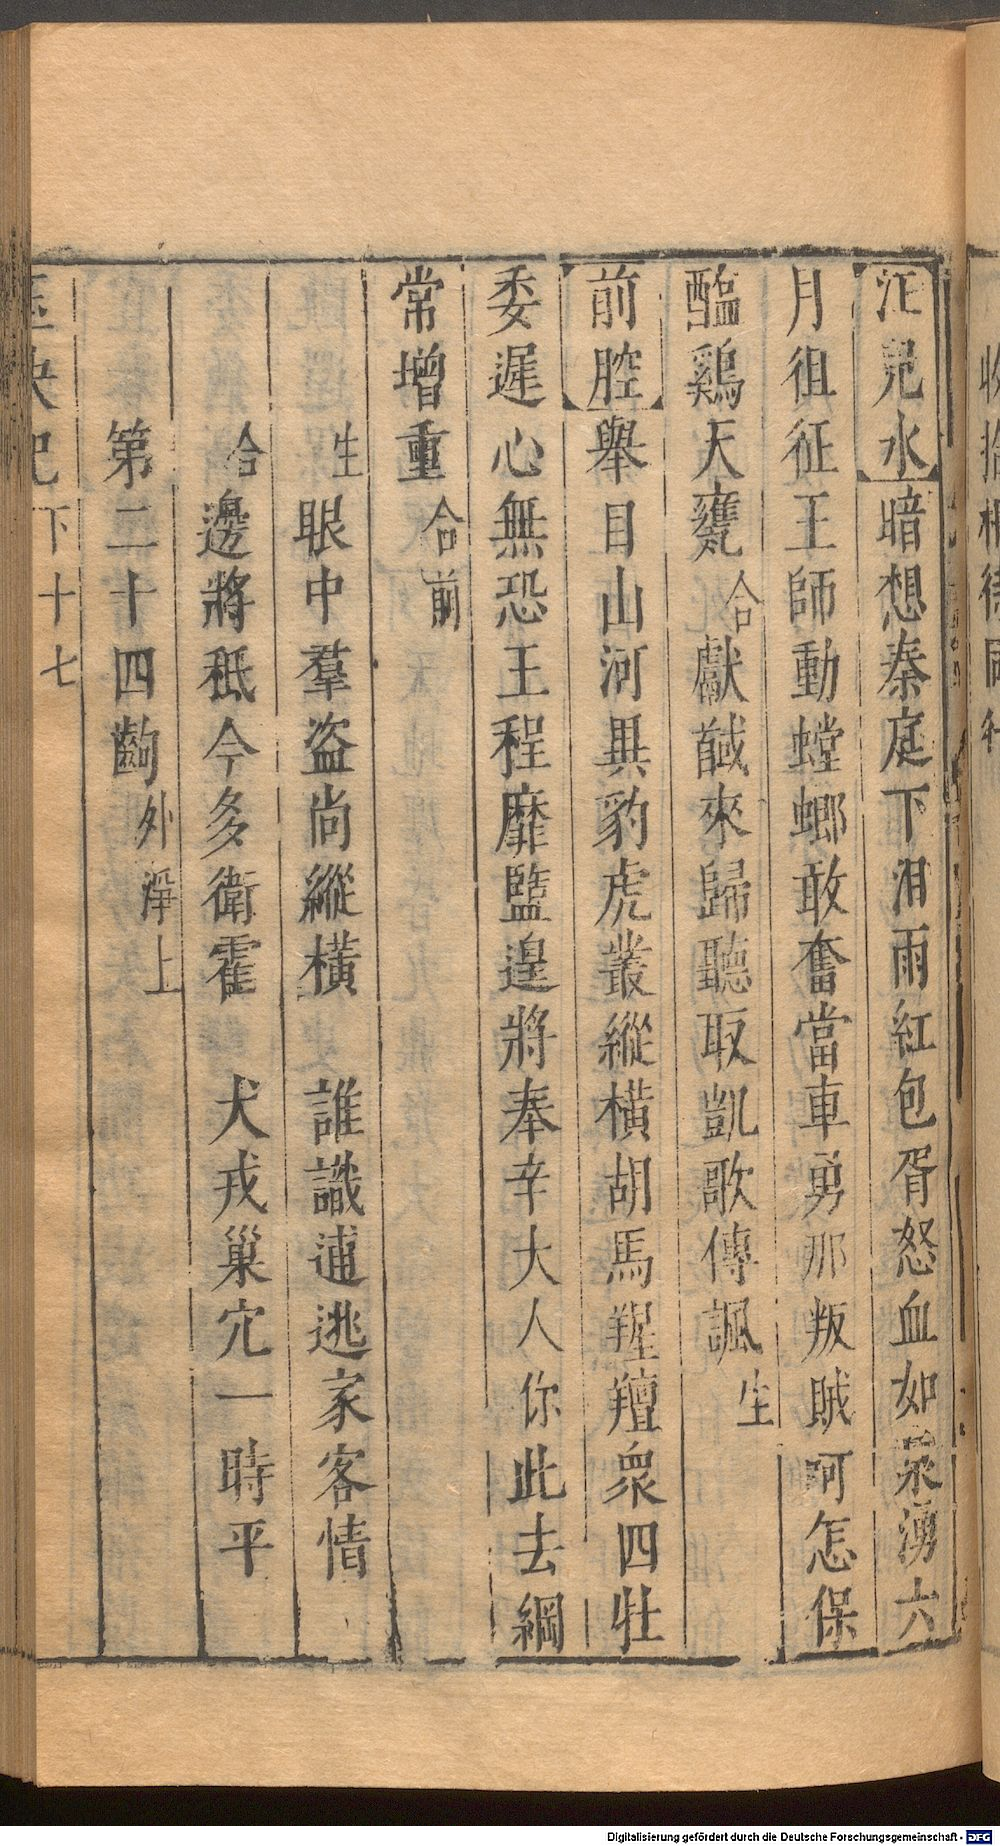 收拾相待同行
江兒水暗想秦庭下淚雨紅包胥怒血如泉湧六
月徂征王師動螳螂敢奮當車勇那叛賊呵怎保
醯鷄天甕合獻馘來歸聽取凱歌傳諷生
前腔舉目山河異豹虎叢縱橫胡馬羶衆四牡
委遲心無恐王程靡盬遑將奉辛大人你此去綱
常增重合前
生眼中羣盜尚縱橫 誰識逋逃家客情
合邊將秪今多衛霍 犬戎巢穴一時平
第二十四齣外淨上
玉玦記下十七
Digitalisierung gefördert durch die Deutsche Forschungsgemeinschaft - DFG